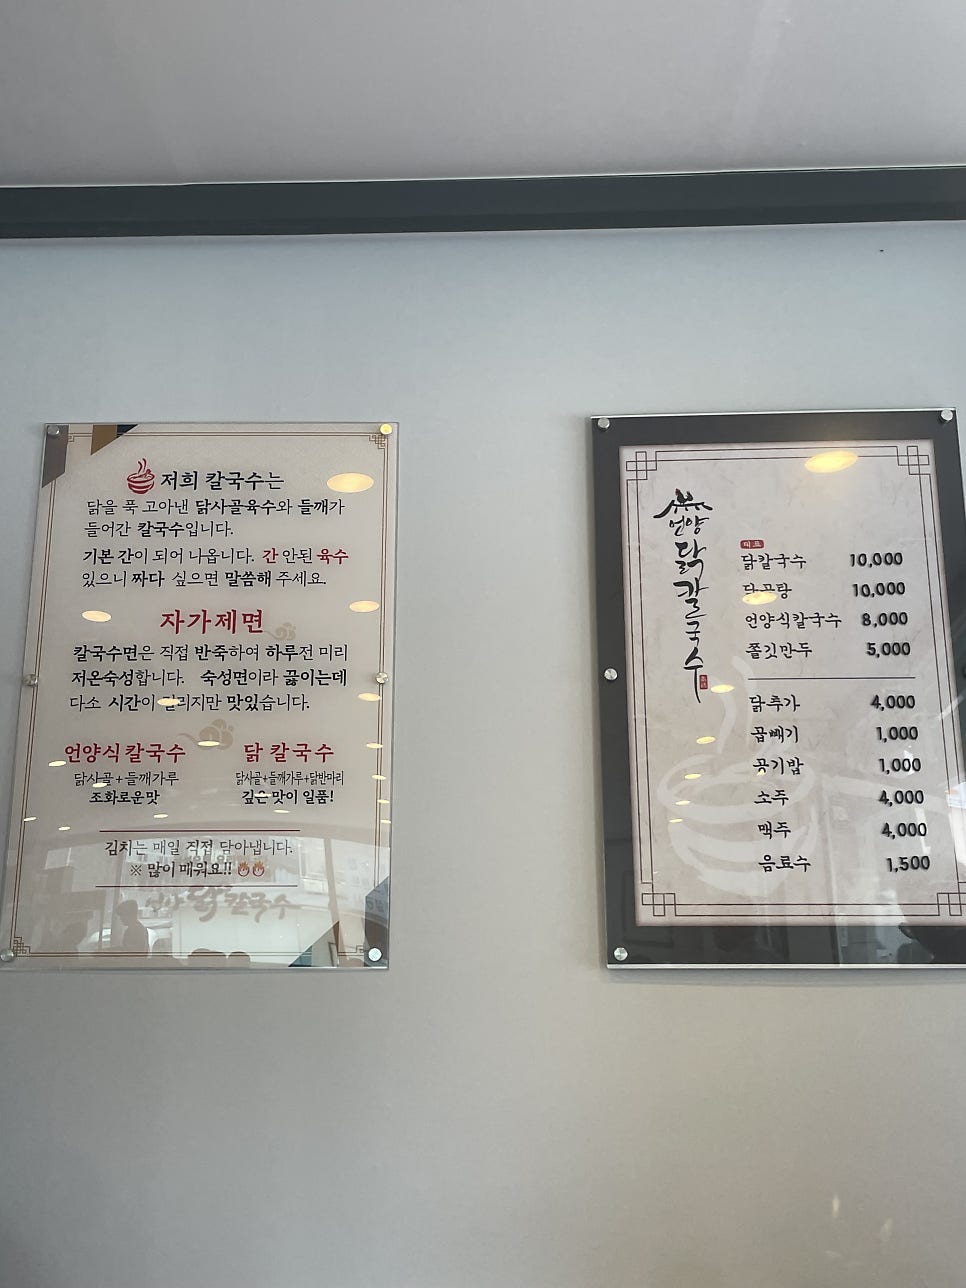 저희 칼국수는
닭을 푹 고아낸 닭사골육수와 들깨가
들어간 칼국수입니다.
기본 간이 되어 나옵니다. 간 안된 육수
있으니 짜다 싶으면 말씀해 주세요.
자가제면
칼국수면은 직접 반죽하여 하루전 미리
저온숙성합니다. 숙성면이라 끓이는데
다소 시간이 걸리지만 맛있습니다.
언양식칼국수
닭사골+들깨가루
조화로운맛
닭 칼국수
닭사골+들깨가루+닭반마리
깊은 맛이 일품!
김치는 매일 직접 담아냅니다.
※ 많이 매워요!!
언양
닭칼국수
대표
닭칼국수 10,000
닭곰탕 10,000
언양식칼국수 8,000
쫄깃만두 5,000
닭추가 4,000
곱빼기 1,000
공기밥 1,000
소주 4,000
맥주 4,000
음료수 1,500